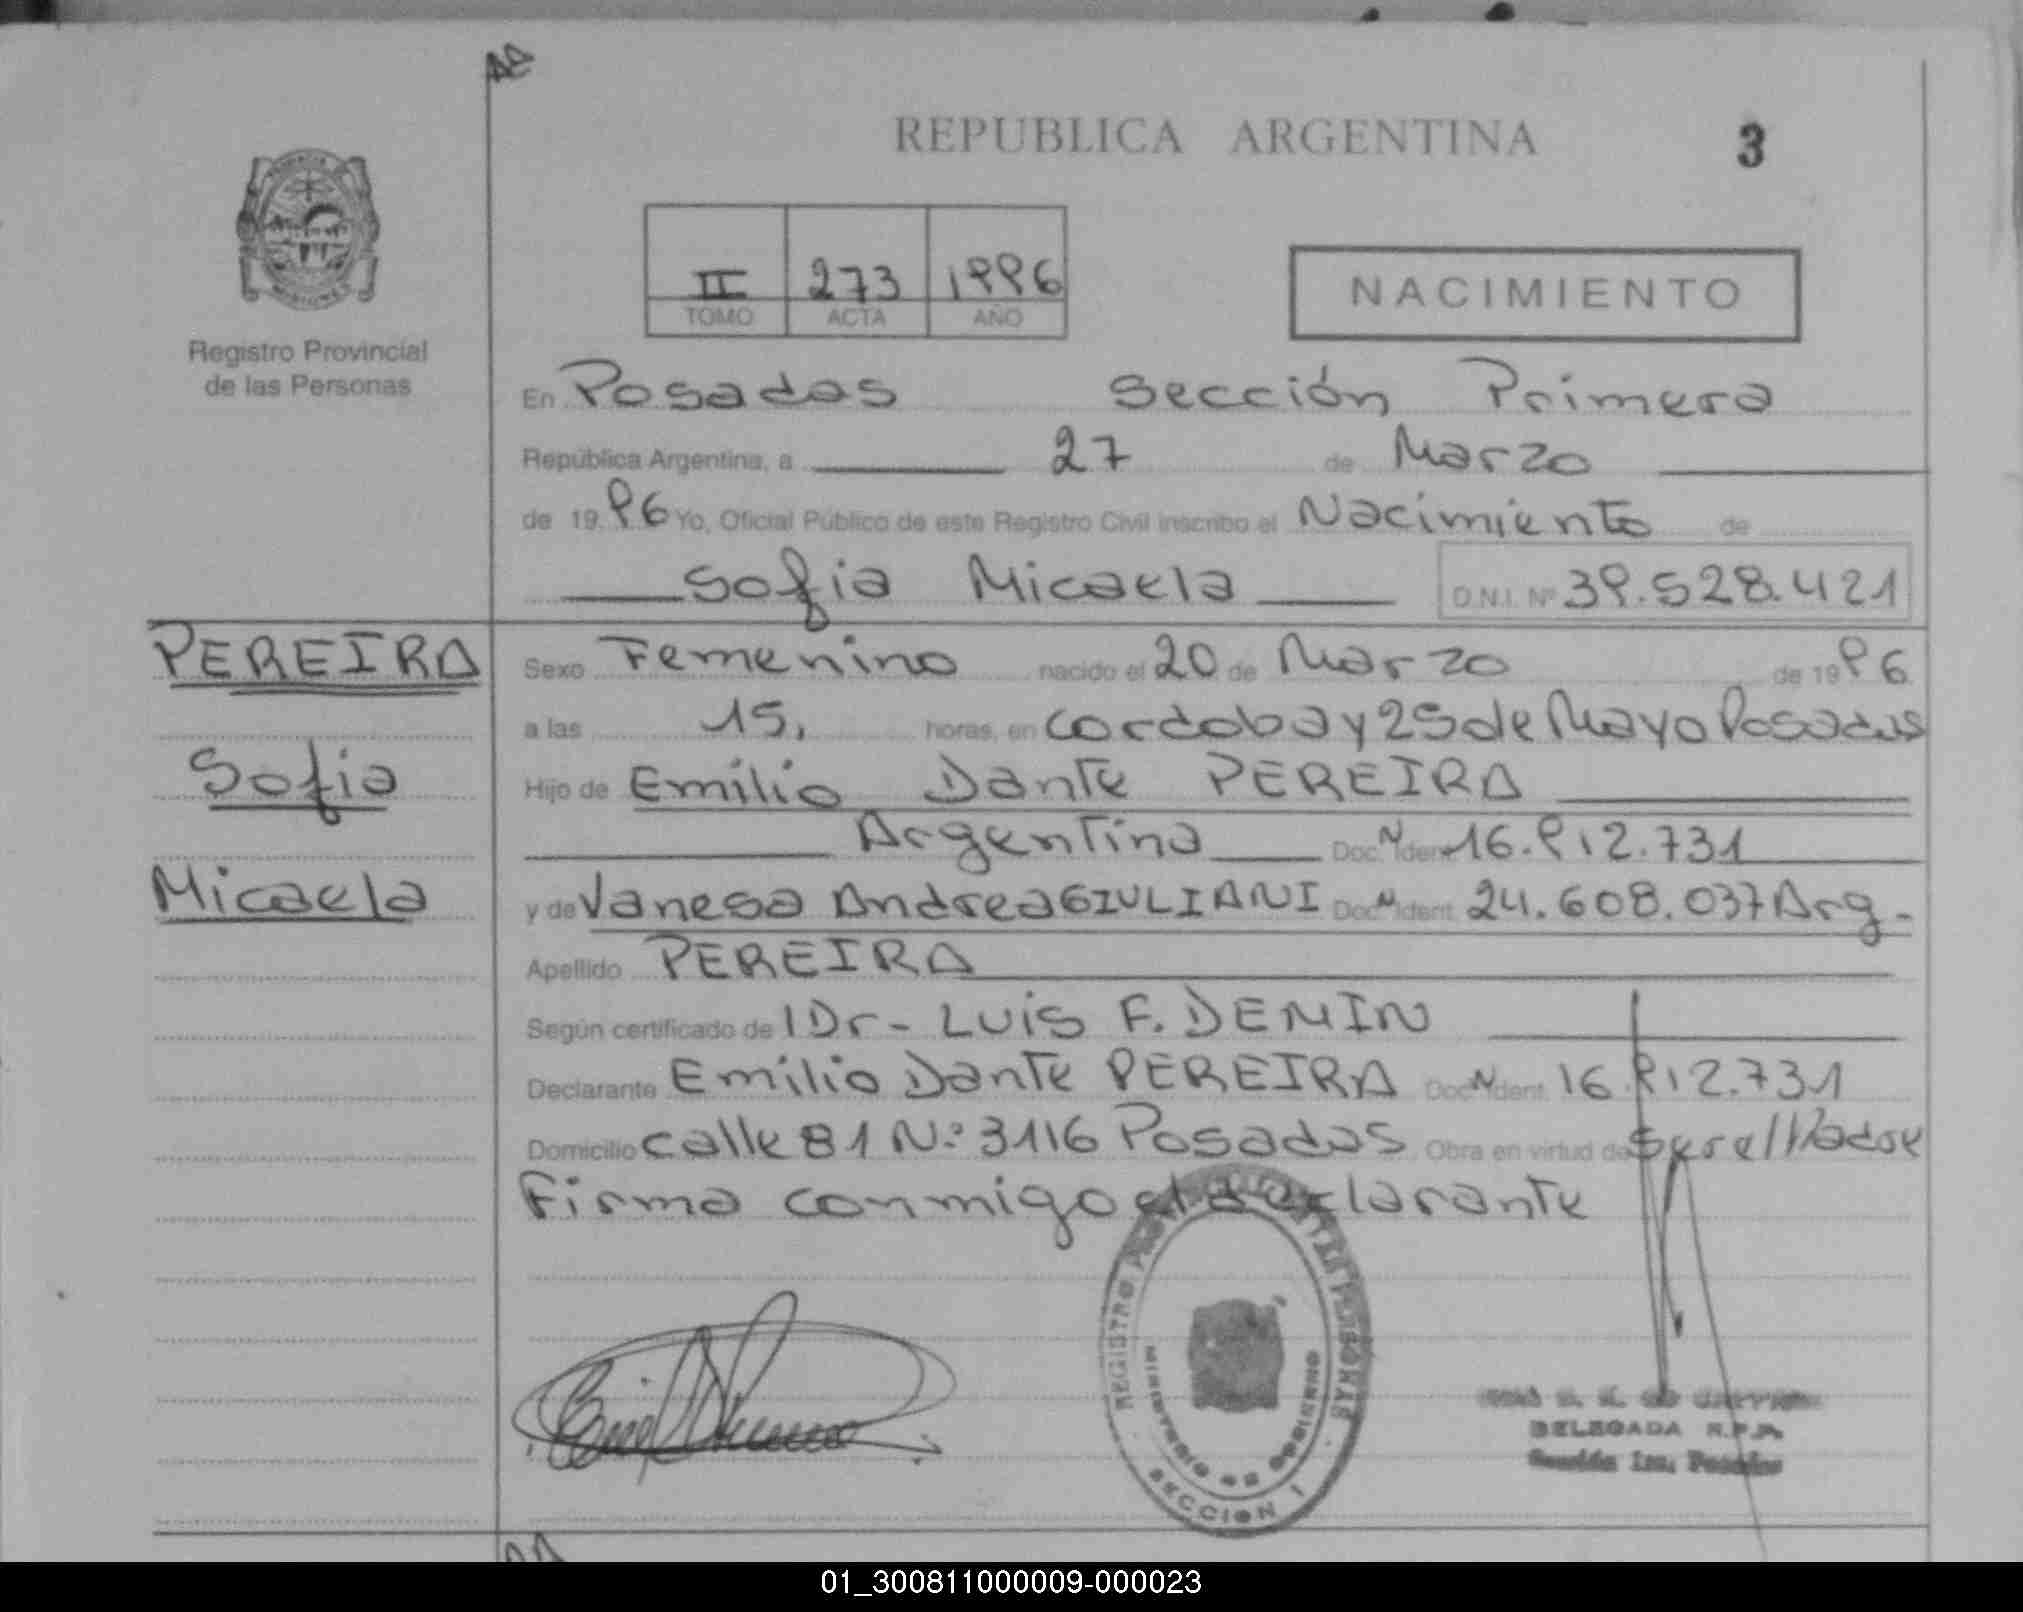 REPUBLICA ARGENTINA
3
II 273 1996
TOMO ACTA AÑO
NACIMIENTO
Registro Provincial
de las Personas
En Posadas Sección Primera
República Argentina, a 27 de Marzo
de 19 96 Yo, Oficial Público de este Registro Civil inscribo el Nacimiento de
Sofia Micaela D.N.I. Nº 39.528.421
PEREIRA
Sofia
Micaela
Sexo Femenino nacido el 20 de Marzo de 19 96
a las 15, horas, en Cordoba y 25 de Mayo Posadas
Hijo de Emilio Dante PEREIRA
Argentina Doc. N Ident 16.912.731
y de Vanesa Andrea GIULIANI Doc. N Ident. 24.608.037 Arg.
Apellido PEREIRA
Según certificado de l Dr- LUIS F. DEMIN
Declarante Emilio Dante PEREIRA Doc N Ident. 16.912.731
Domicilio calle 81 Nº 3116 Posadas Obra en virtud de ser el Padre
Firma conmigo el declarante
REGISTRO DE LAS PERSONAS
MINISTERIO DE GOBIERNO
SECCION 1
DELEGADA R.P.P.
Sección 1ra. Posadas
01_300811000009-000023